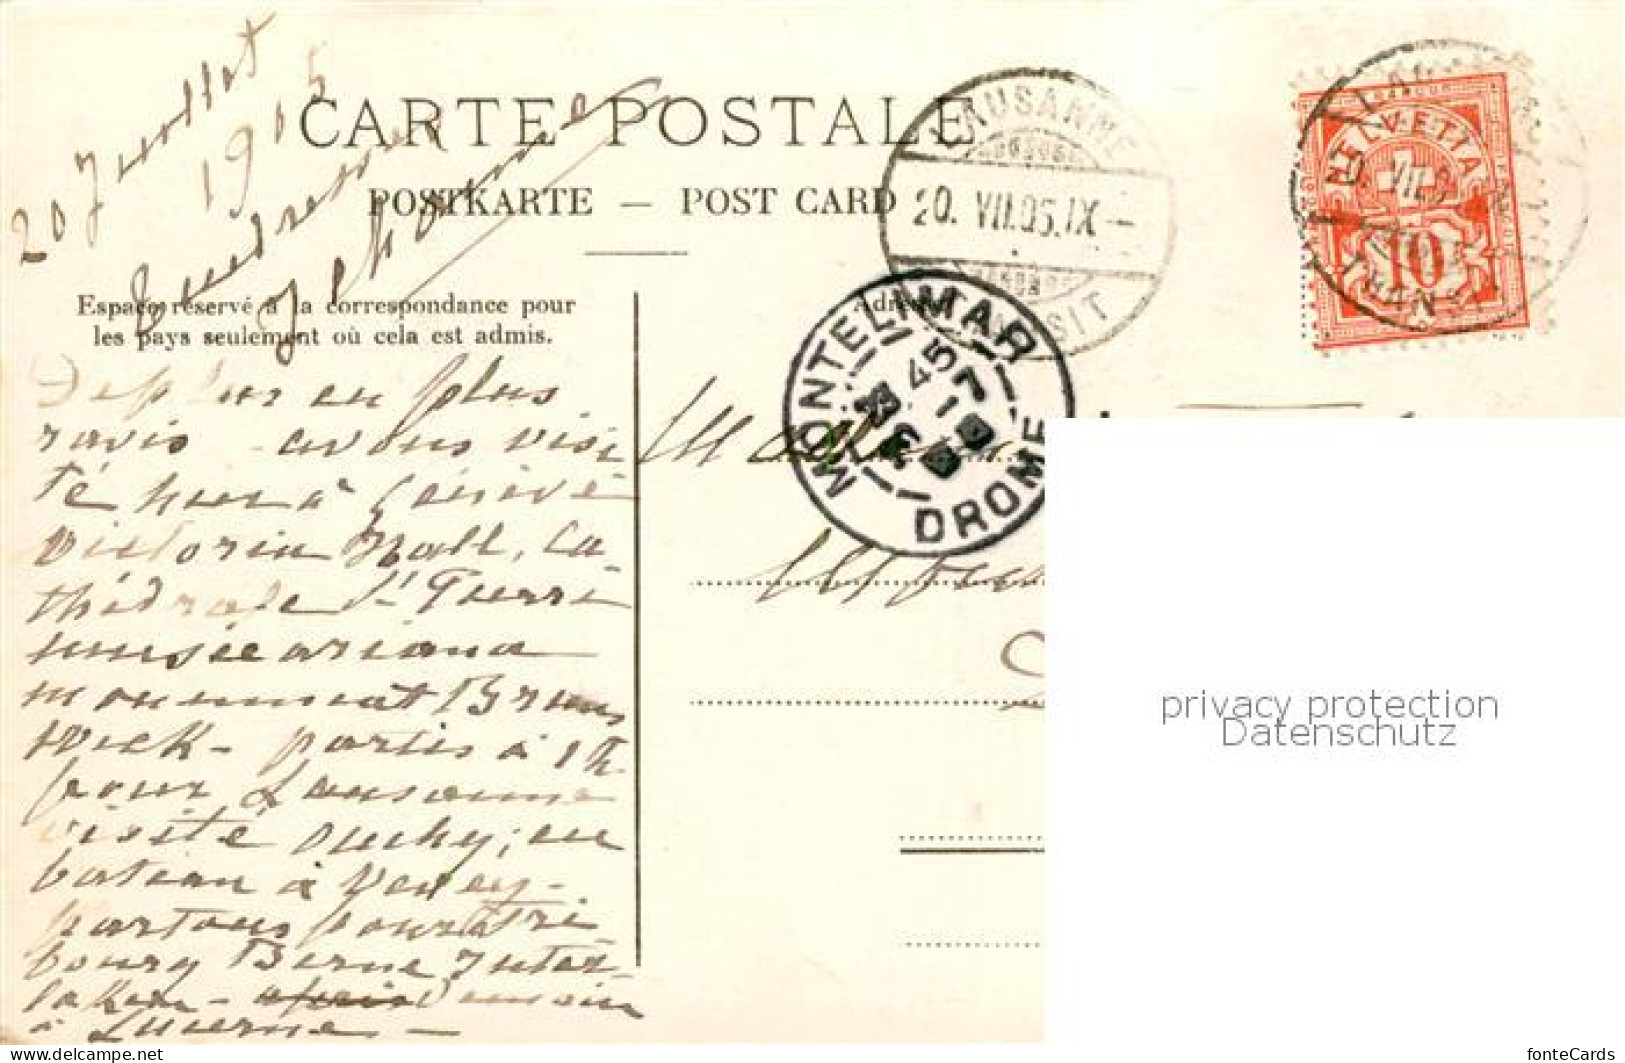 20 Juillet
1905
CARTE POSTALE
POSTKARTE — POST CARD
Espace réservé à la correspondance pour
les pays seulement où cela est admis.
LAUSANNE
20. VII.05.IX –
TRANSIT
HELVETIA
10
MONTELIMAR
DROME
De plus en plus
ravis – avons visi
té hier à Genève
Victoria Hall, Ca-
thédrale St Pierre
musée ariana
monument Bruns
wick – partis à 1h
pour Lausanne
visité Ouchy, en
bateau à Vevey –
partons pour Fri
bourg Berne Inter-
laken –
à Lucerne –
privacy protection
Datenschutz
fonteCards
delcampe.net